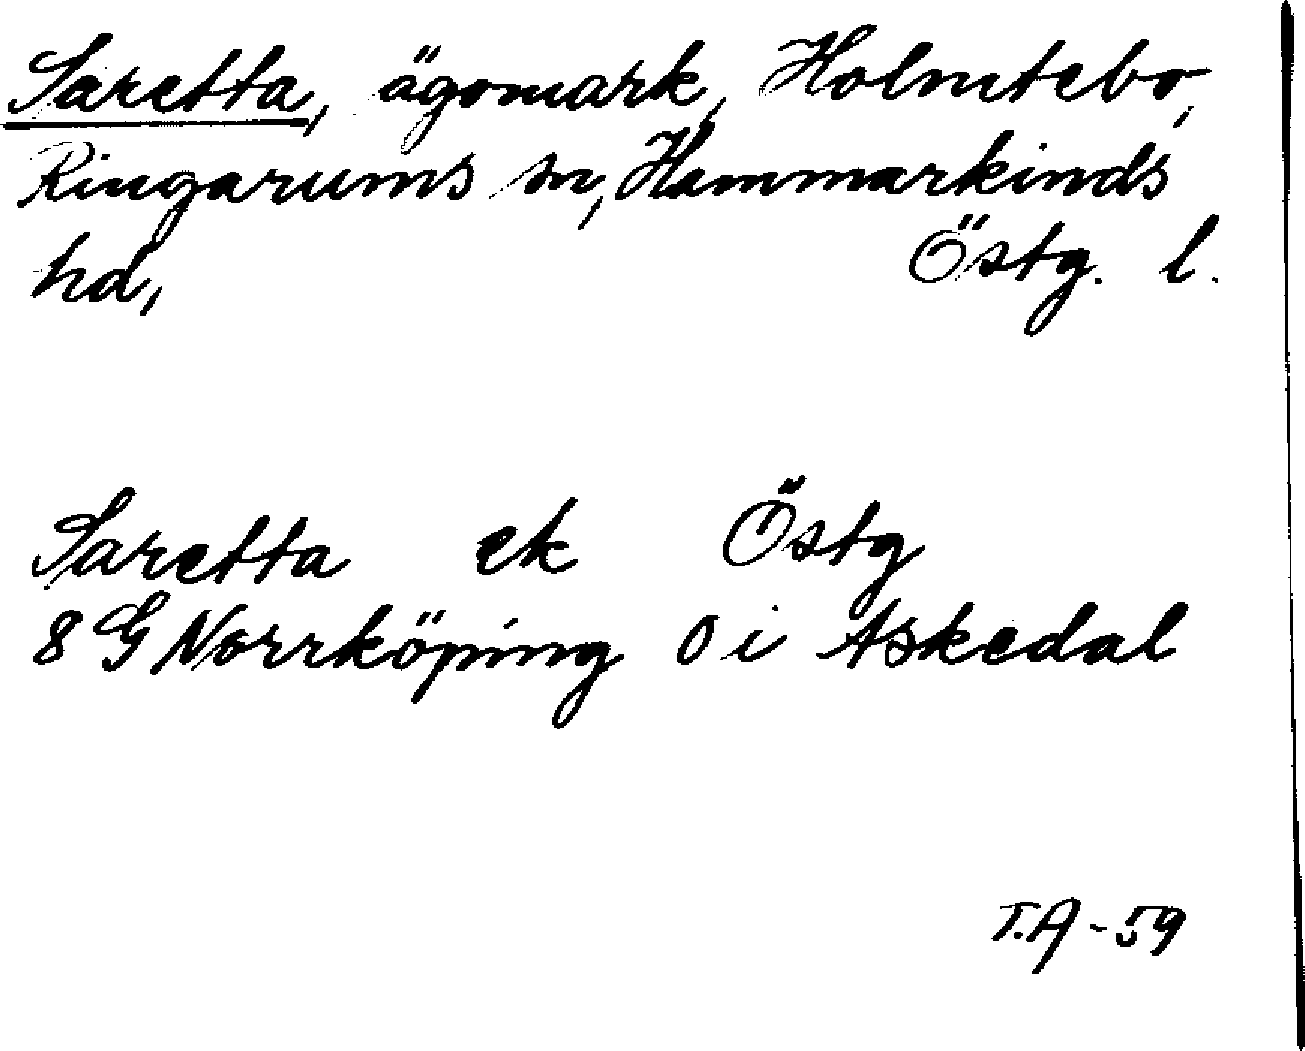 Saretta, ägomark, Holmtebo,
Ringarums sn, Hammarkinds
hd, Östg. l.
Saretta ek Östg
8 G Norrköping O i Askedal
T.A-59